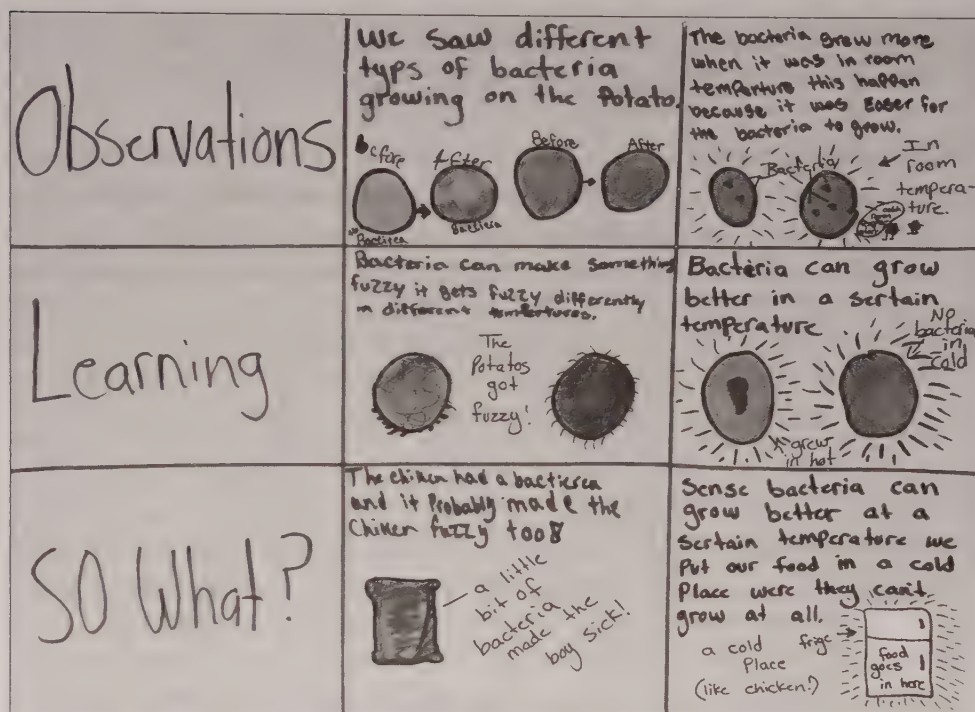 Observations
We saw different
typs of bacteria
growing on the Potato.
Before
After
Before
After
No
Bactirea
Bactiera
The bacteria grew more
when it was in room
temperture this happen
because it was Easer for
the bacteria to grow.
Bacteria
In
room
tempera-
ture.
Learning
Bacteria can make something
fuzzy it gets fuzzy differently
in different temfertures.
The
Potatos
got
fuzzy!
Bacteria can grow
better in a sertain
temperature
No
bacteria
in
cold
grew
in hot
SO What?
The chiken had a bactierea
and it Probably made the
Chiken fuzzy too
a little
bit of
bacteria
made the
boy sick!
Sense bacteria can
grow better at a
sertain temperature we
Put our food in a cold
Place were they can't
grow at all.
a cold
Place
(like chicken!)
frige
food
goes
in here